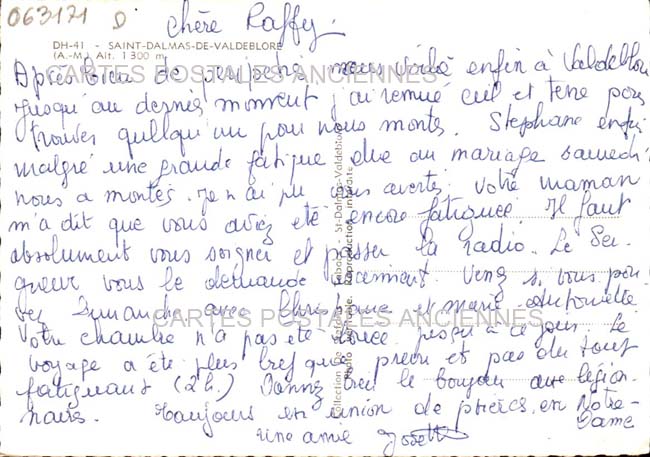 063171 D
chère Raffy.
DH-41 - SAINT-DALMAS-DE-VALDEBLORE
(A.-M.) Alt. 1300 m
CARTES POSTALES ANCIENNES
Après bien de peripetie nous voilà enfin à Valdeblore
jusqu'au dernier moment j'ai remué ciel et terre pour
trouver quelqu'un pour nous monter. Stephane enfin
malgré une grande fatigue due au mariage samedi
nous a montés. Je n'ai pu vous avertir votre maman
m'a dit que vous aviez été encore fatiguée. Il faut
absolument vous soigner et passer la radio. Le Sei-
gneur vous le demande vivement. Venez si vous pou-
vez Dimanche avec Christiane et Marie-Antoinette
CARTES POSTALES ANCIENNES
Votre chambre n'a pas été louée jusqu'à ce jour. Le
voyage a été plus bref que prévu et pas du tout
fatiguant (2h.) Donnez bien le bonjour aux légion-
naires. Toujours en union de prières en Notre-
Dame
une amie Josette
Collection
St-Dalmas-Valdeblore
Photo véritable. Reproduction interdite